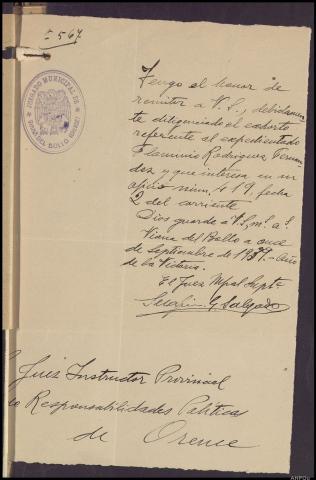 E 567
JUZGADO MUNICIPAL DE
VIANA DEL BOLLO (ORENSE)
Tengo el honor de
remitir a V.S., debidamen
te diligenciado el exhorto
referente al expedientado
Flaminio Rodriguez Fernan
dez y que interesa en su
oficio núm. 419, fecha
2 del corriente
Dios guarde a V.S. m. a.
Viana del Bollo a once
de Septiembre de 1939.- Año
de la Victoria.
El Juez Mpal Supte
Serafin G Salgado
Juez Instructor Provincial
Responsabilidades Politicas
de Orense